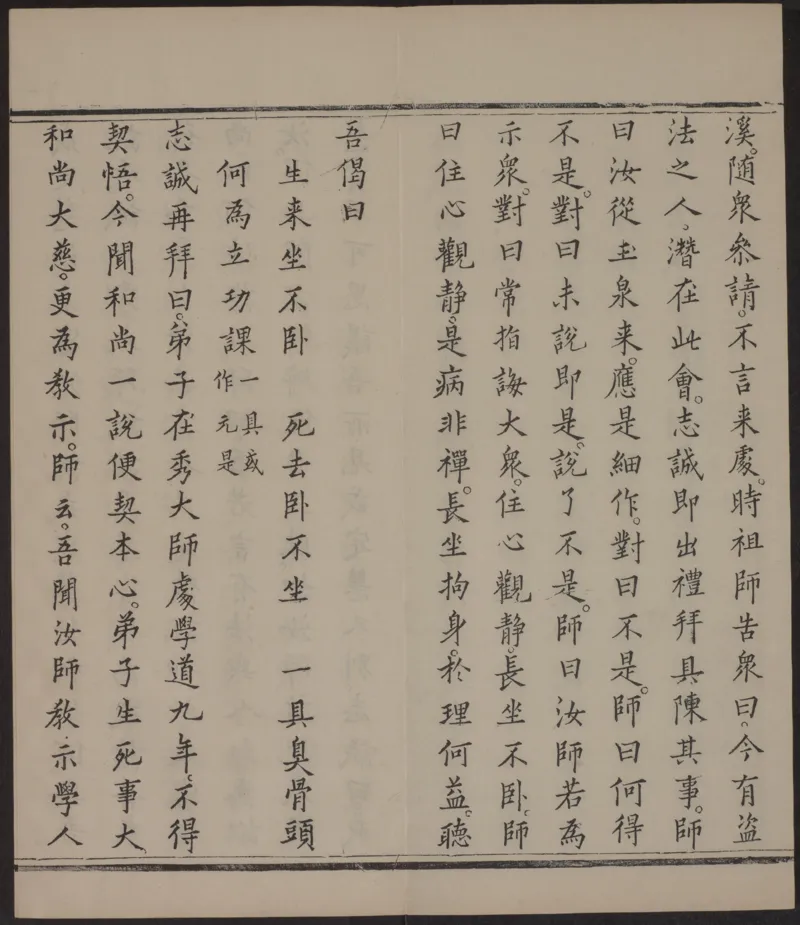 溪。随衆叅請。不言来處。時祖師告衆曰。今有盜
法之人。潛在此會。志誠即出禮拜具陳其事。師
曰汝從玉泉来。應是細作。對曰不是。師曰何得
不是。對曰未說即是。說了不是。師曰汝師若為
示衆。對曰常指誨大衆。住心觀静。長坐不卧。師
曰住心觀静。是病非禪。長坐拘身。於理何益。聽
吾偈曰
生来坐不卧 死去卧不坐 一具臭骨頭
何為立功課一具或作元是
志誠再拜曰。弟子在秀大師處學道九年。不得
契悟。今聞和尚一說便契本心。弟子生死事大
和尚大慈。更為教示。師云。吾聞汝師教示學人